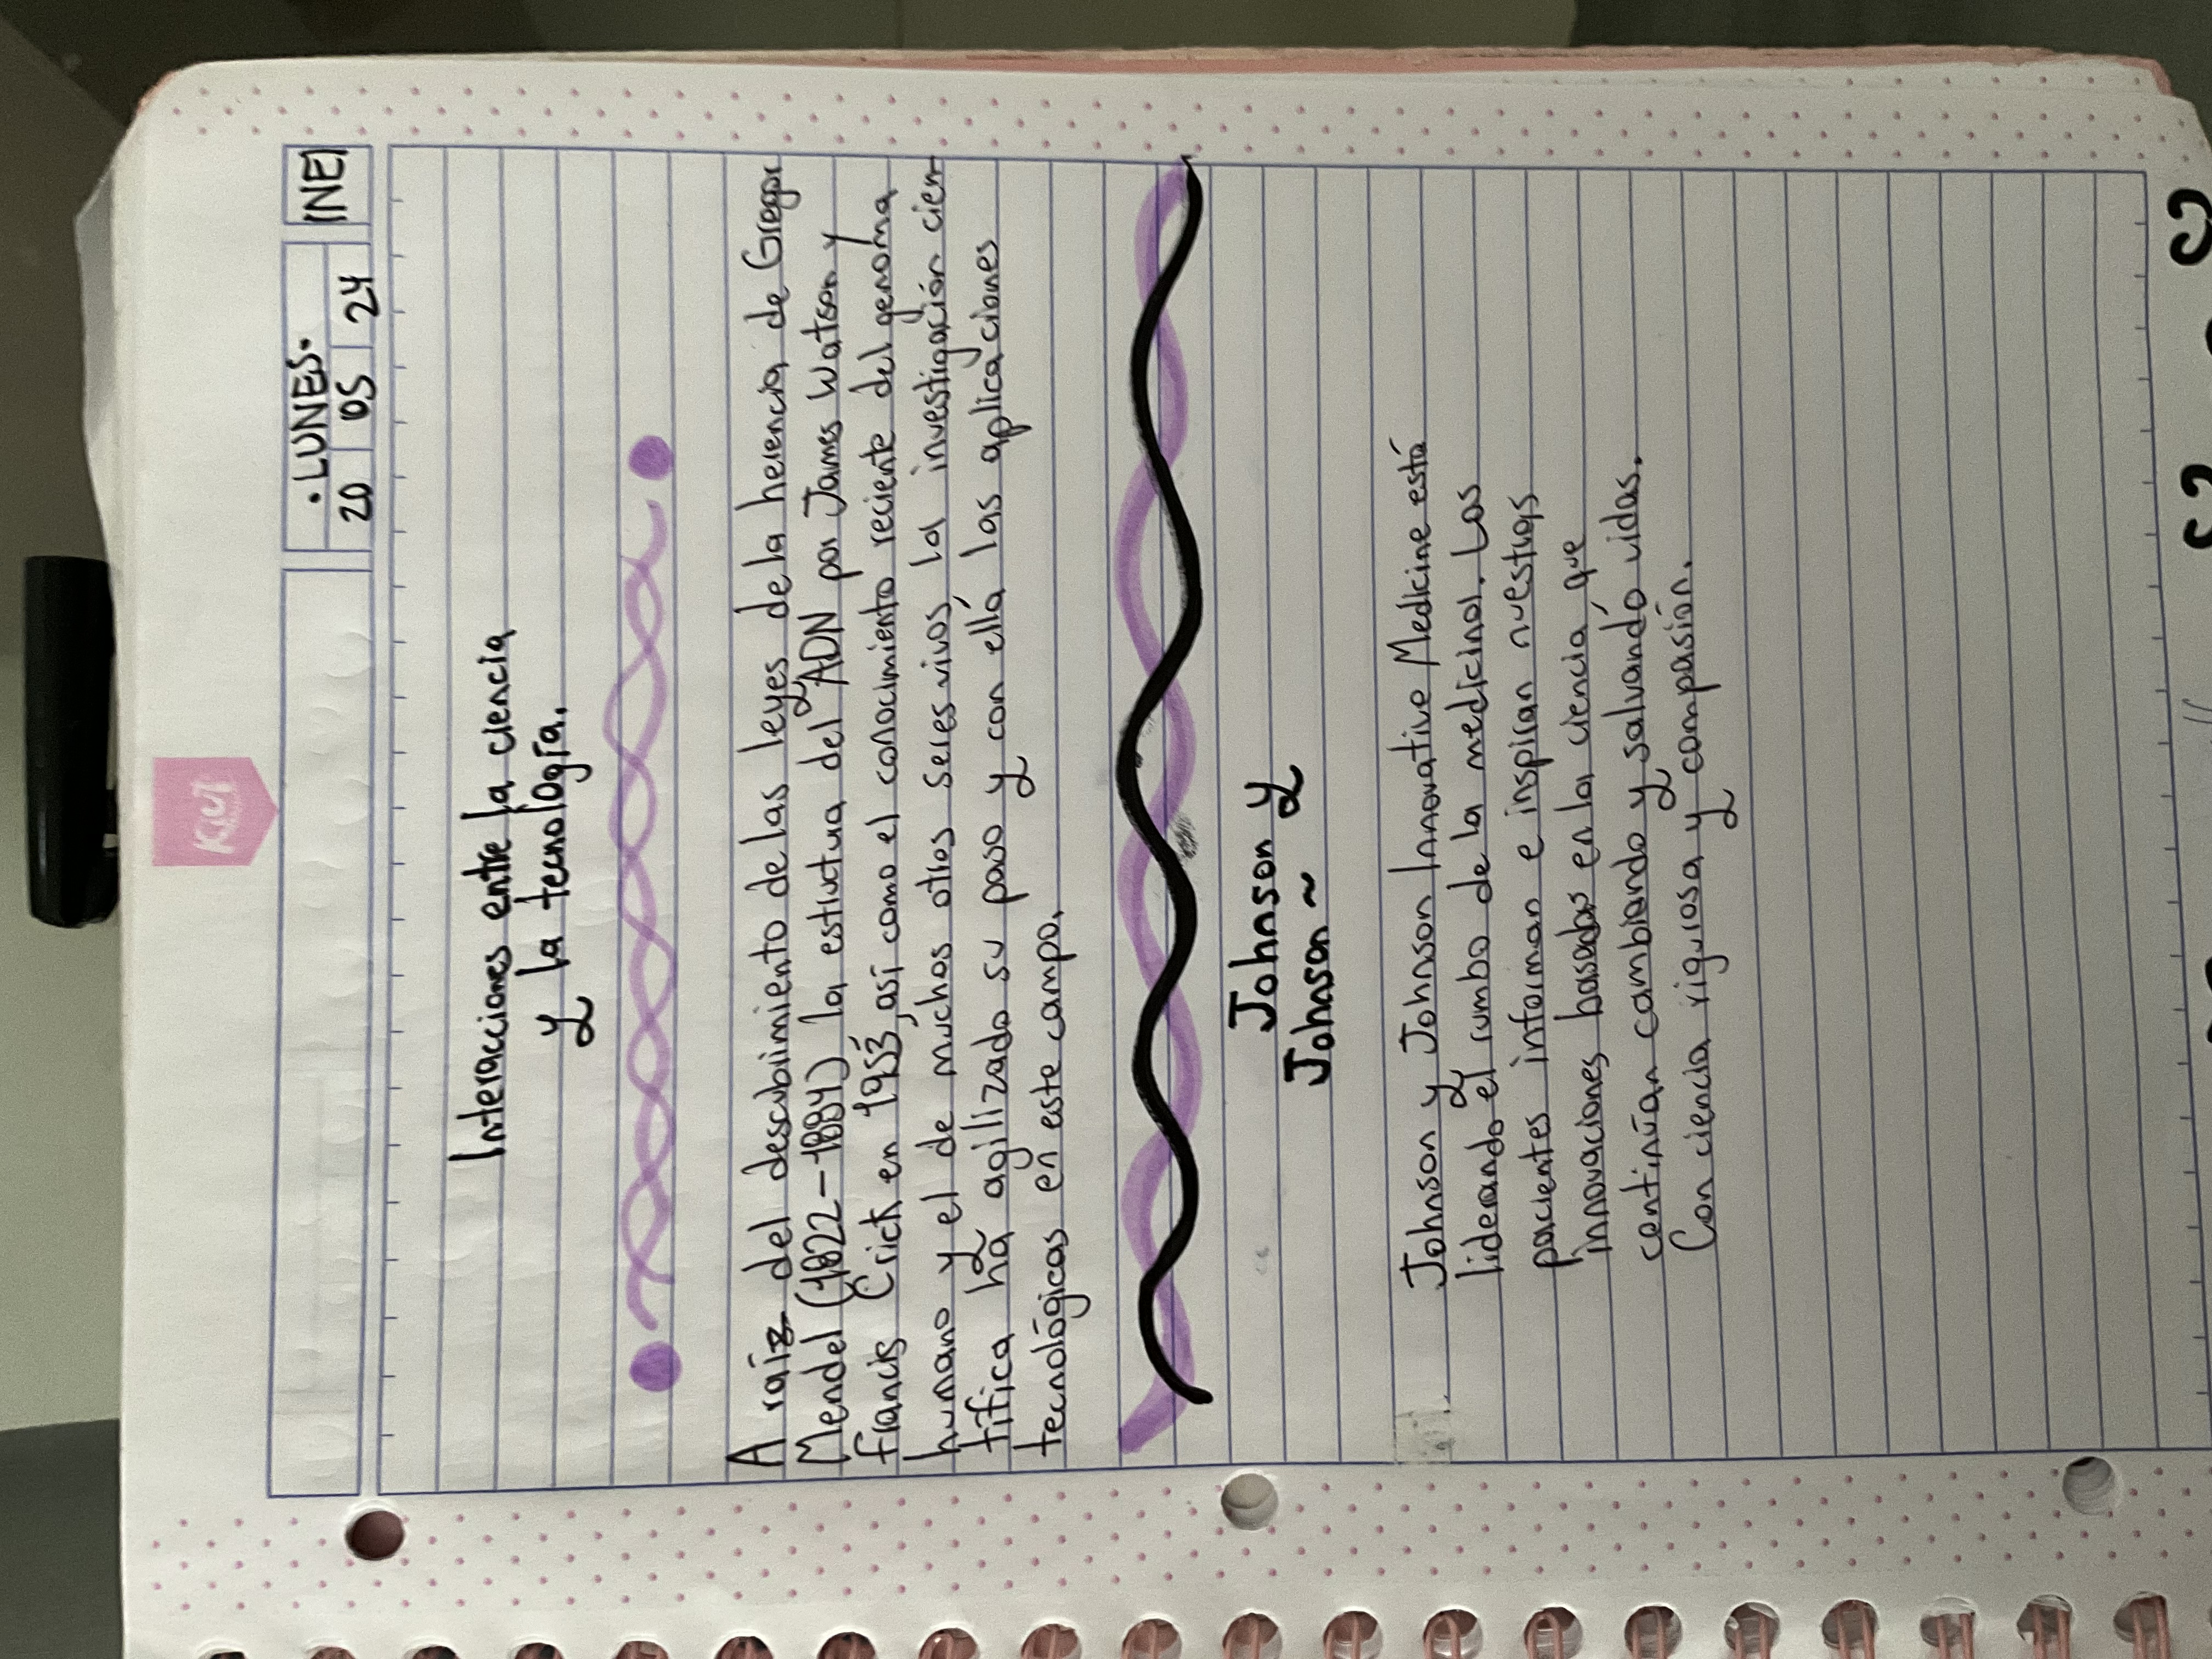 Kiut
· LUNES · INE
20 05 24
Interacciones entre la ciencia
y la tecnología.
A raíz del descubimiento de las leyes de la herencia de Gregor
Mendel (1822-1884) la estructura del ADN por James Watson y
francis Crick en 1953, así como el conocimiento reciente del genoma
humano y el de muchos otros seres vivos la investigación cien-
tífica ha agilizado su paso y con ella las aplicaciones
tecnológicas en este campo.
Johnson y
Johnson ~
Johnson y Johnson Innovative Medicine está
liderando el rumbo de la medicina. Los
pacientes informan e inspiran nuestras
innovaciones basadas en la ciencia que
continúan cambiando y salvando vidas.
Con ciencia rigurosa y compasión.